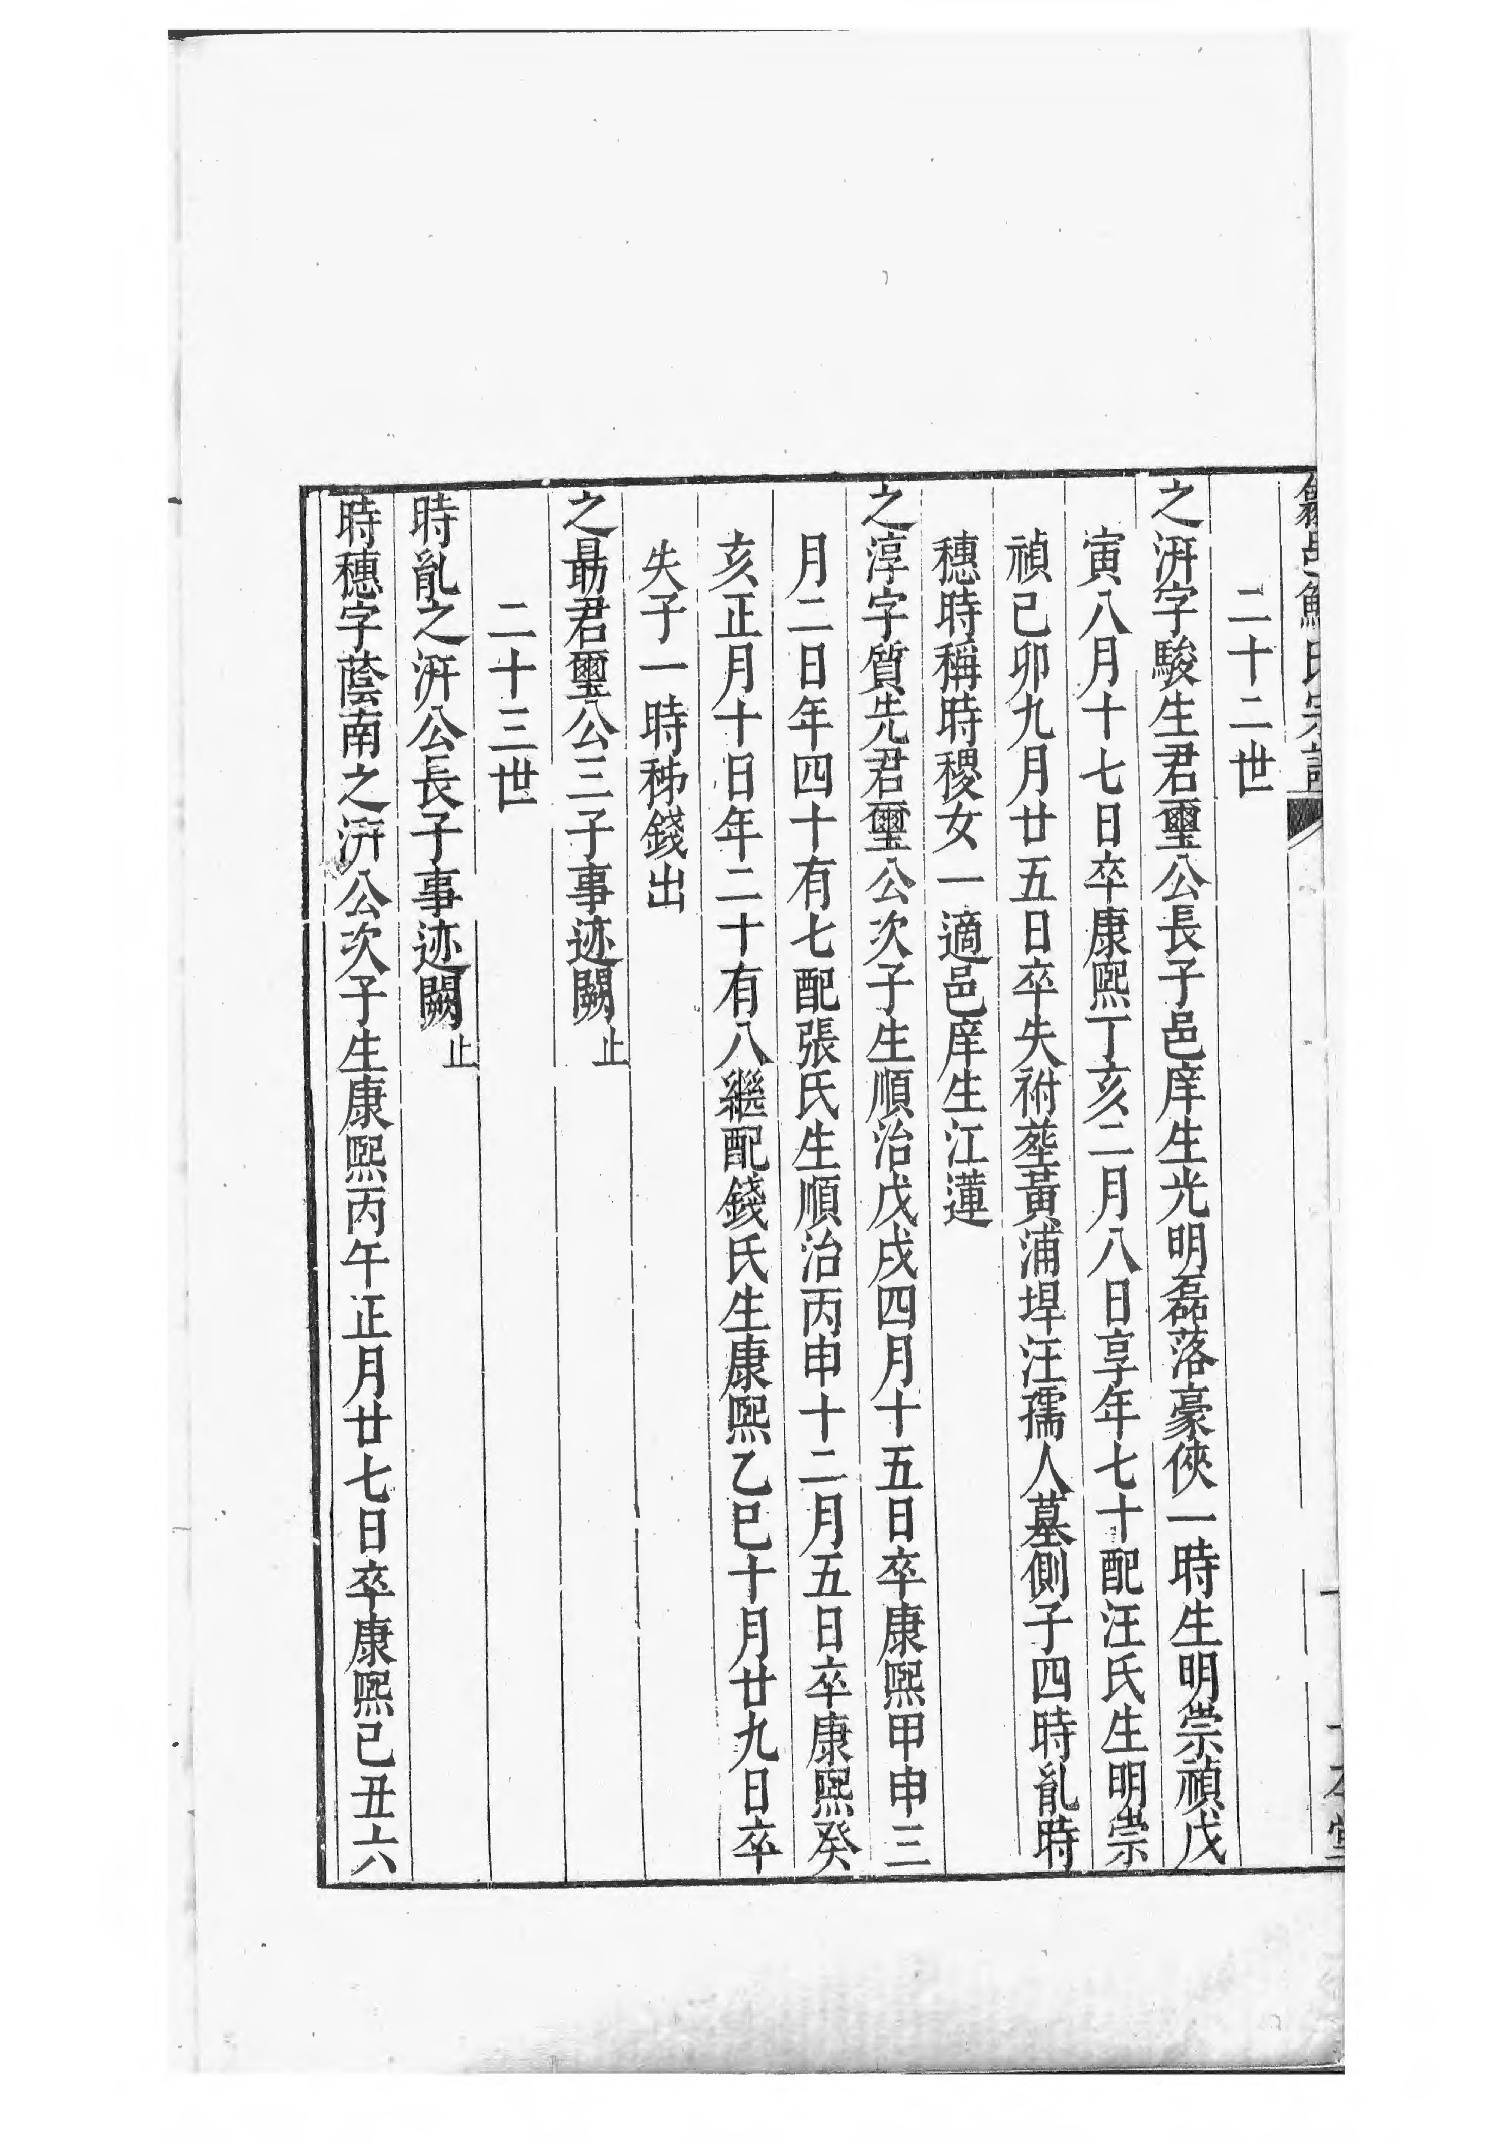 鮑氏宗譜
二十二世
之汧字駿生君璽公長子邑庠生光明磊落豪俠一時生明崇禎戊
寅八月十七日卒康熙丁亥二月八日享年七十配汪氏生明崇
禎己卯九月廿五日卒失祔塟黃浦垾汪孺人墓側子四時亂時
穗時稱時稷女一適邑庠生江蓮
之淳字質先君璽公次子生順治戊戌四月十五日卒康熙甲申三
月二日年四十有七配張氏生順治丙申十二月五日卒康熙癸
亥正月十日年二十有八繼配錢氏生康熙乙巳十月廿九日卒
失子一時秭錢出
之勗君璽公三子事迹闕止
二十三世
時亂之汧公長子事迹闕止
時穗字蔭南之汧公次子生康熙丙午正月廿七日卒康熙己丑六